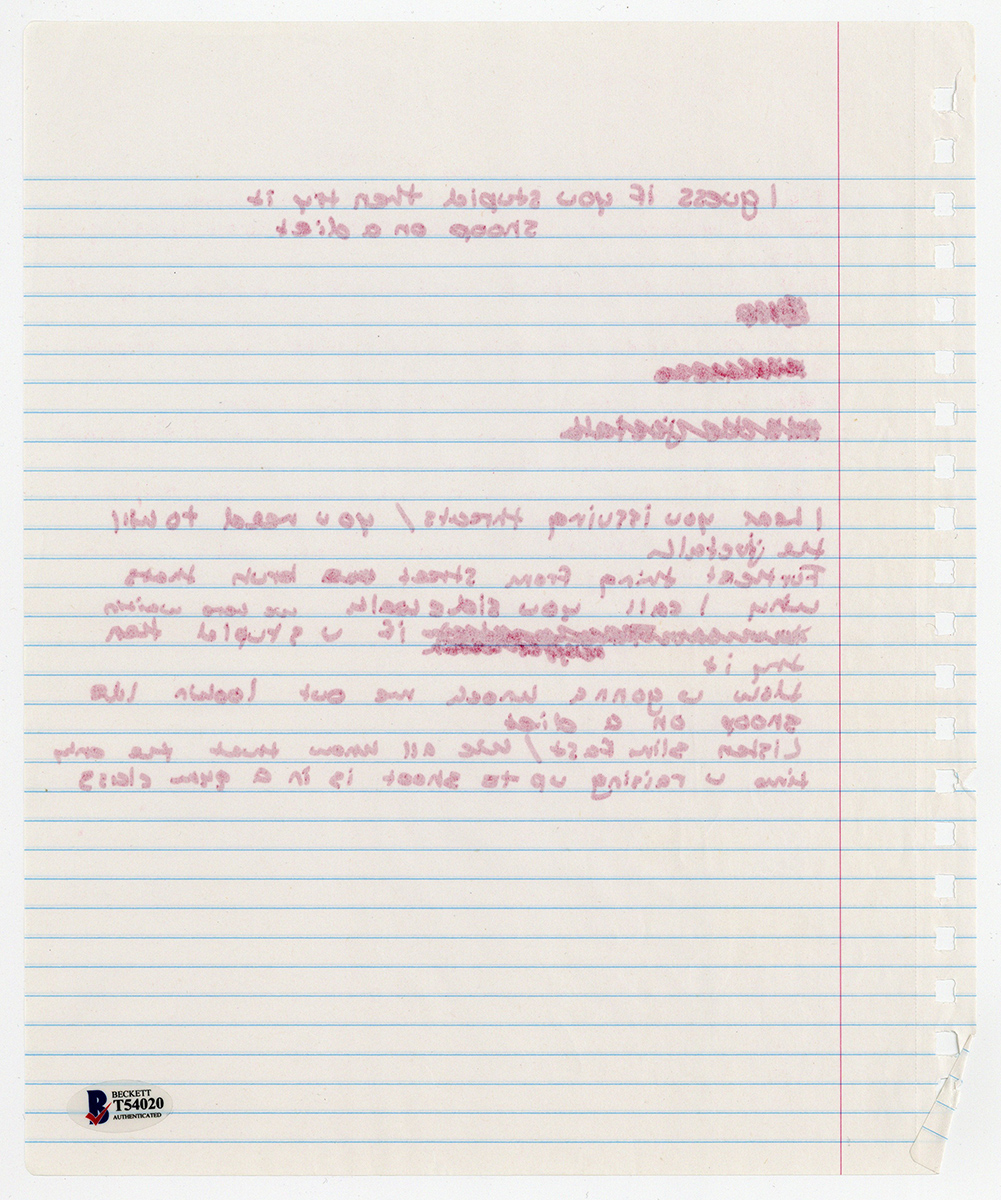 I guess if you stupid then try it
snoop on a diet
I hear you issuing threats / you need to kill
the
Furthest thing from street bruh thats
why I call you sidewalk we were waitin
if u stupid then
try it
thow u gonna knock me out lookin like
snoop on a diet
Listen slim fast / we all know that the only
time u raising up to shoot is in a gym class
BECKETT
T54020
AUTHENTICATED